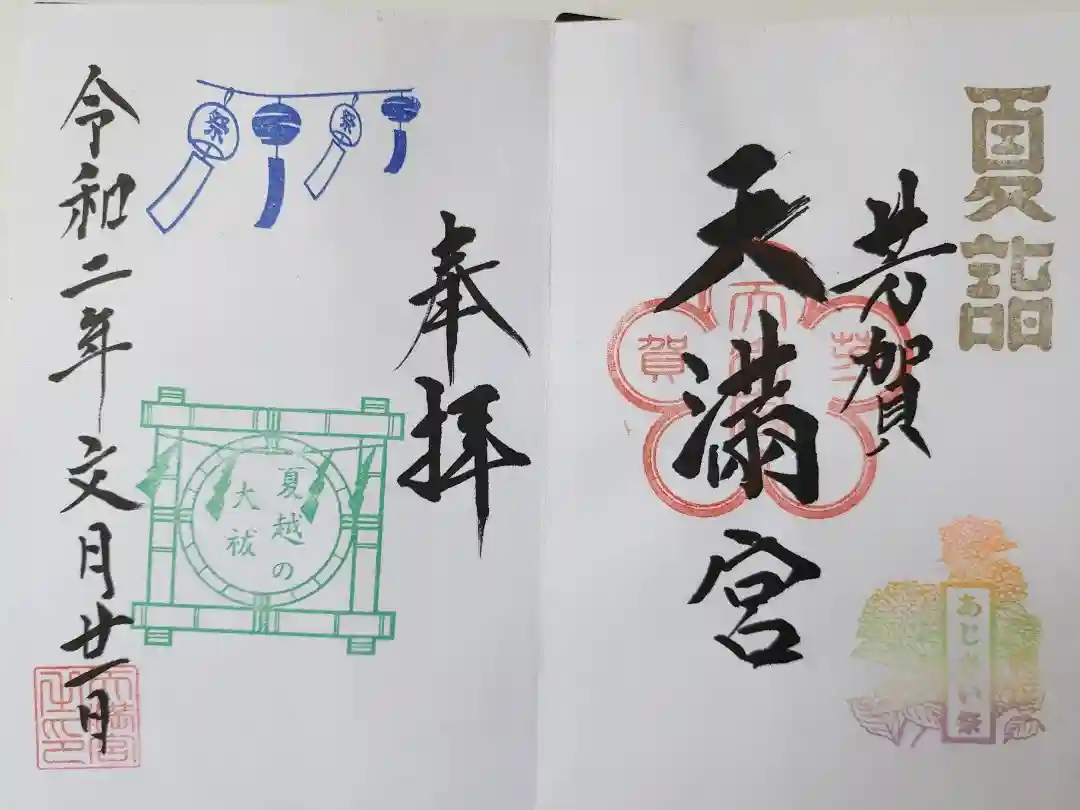 夏詣
芳賀
天満宮
芳
天
賀
あじさい祭
奉拝
祭
祭
夏越の
大祓
令和二年文月廿一日
天満宮
之印